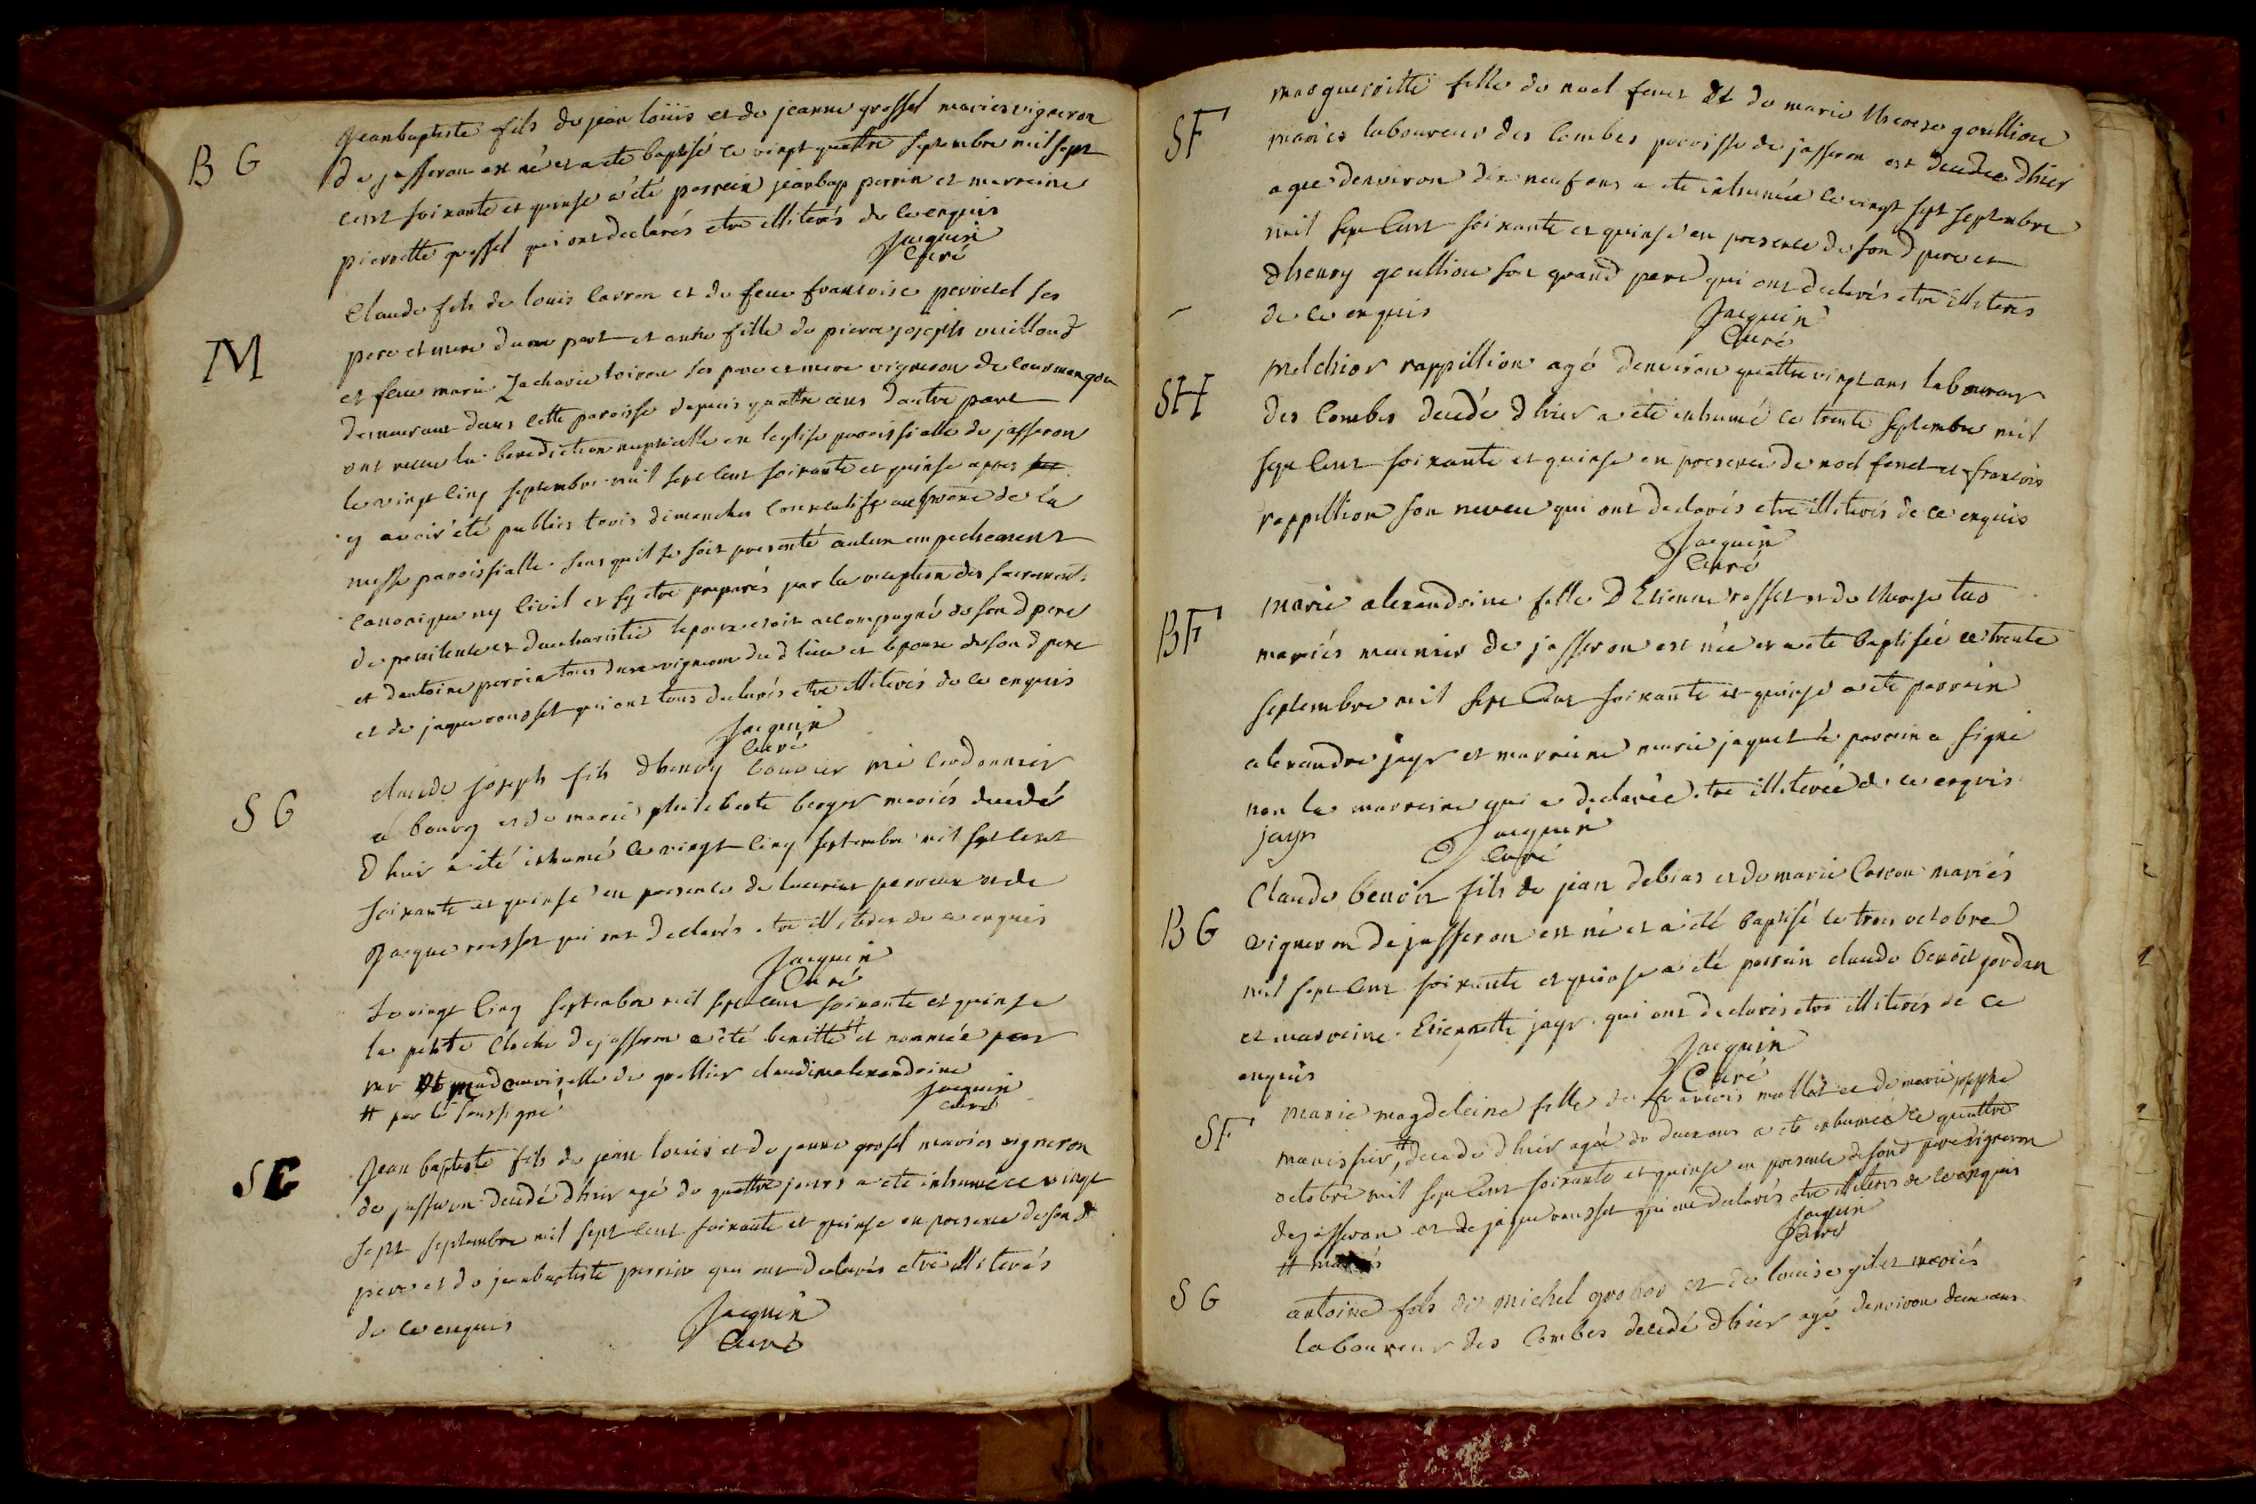 B G
Jeanbaptiste fils de jean loüis et de jeanne grossel mariés vigneron
de jasseron est né et a ete baptisé ce vingt quattre septembre mil sept
cent soixante et quinse a été parrein jeanbap perrin et marreine
pierrette grossel qui ont declarés etre illiterés de ce enquis
Jacquin
Curé
M
Claude fils de louis Carron et de feue francoise perretel ses
pere et mere dune part et anne fille de pierre joseph vuilloud
et feue marie Zacharie loiron ses pere et mere vigneron de Courmangou
demeurant dans cette paroisse depuis quattre ans dautre part
ont recue la benediction nuptialle en leglise paroissialle de jasseron
le vingt cinq septembre mil sept cent soixante et quinse apres
y avoir été publies trois dimanches consecutifs au prone de la
messe paroissialle sans quil se soit presenté aucun empechement
canonique ny civil et sy etre preparés par la reception des sacrements
de penitence et deucharistie lepoux etoit accompagné de son d pere
et dantoine perrin tous deux vigneron du d lieu et lepouse de son d pere
et de jaque rousset qui ont tous declarés etre illiterés de ce enquis
Jacquin
Curé
S G
claude joseph fils dhenry bouvier me Cordonnier
a bourg et de marie philiberte berger mariés decedé
dhier a été inhumé ce vingt cinq septembre mil sept cent
soixante et quinse en presence de laurent perreux et de
Jacque rousset qui ont declarés etre illiteres de ce enquis
Jacquin
Curé
Le vingt cinq septembre mil sept cent soixante et quinse
la petite Cloche de jasseron a été benitte # et nommée par
mr et mademoiselle de grollier claudine alexandrine
# par le soussigné
Jacquin
curé
S G
Jean baptiste fils de jean louis et de jeanne grossel mariés vigneron
de jasseron decedé dhier agé de quattre jours a ete inhumé ce vingt
sept septembre mil sept cent soixante et quinse en presence de son d
pere et de jeanbaptiste perrin qui ont declarés etre illiterés
de ce enquis
Jacquin
Curé
SF
margueritte fille de noel fenet et de marie therese goullion
mariés laboureur des Combes paroisse de jasseron est decedee dhier
agee denviron dix neuf ans a ete inhumée ce vingt sept septembre
mil sept cent soixante et quinse en presence de son d pere et
dhenry goullion son grand pere qui ont declarés etre illiteres
de ce enquis
Jacquin
Curé
SH
Melchior rappillion agé denviron quattre vingt ans laboureur
des Combes decedé dhier a ete inhumé ce trente septembre mil
sept cent soixante et quinse en presence de noel fenet et francois
rappillion son neveu qui ont declarés etre illiterés de ce enquis
Jacquin
Curé
BF
marie alexandrine fille dEtienne rosset et de therese
mariés meunier de jasseron est née et a ete baptisée ce trente
septembre mil sept cent soixante et quinse a ete parrein
alexandre jayr et marreine marie jaquet le parrain a signé
non la marreine qui a declarée etre illiterée de ce enquis
jayr
Jacquin
Curé
BG
Claude benoit fils de jean debias et de marie Carron mariés
vigneron de jasseron est né et a été baptisé le trois octobre
mil sept cent soixante et quinse a été parrein claude benoit jordan
et marreine Etiennette jayr qui ont declarés etre illiterés de ce
enquis
Jacquin
Curé
SF
marie magdeleine fille de francois mallet et de marie josephe
# decedé dhier agée de deux ans a ete inhumée ce quattre
octobre mil sept cent soixante et quinse en presence de son d pere vigneron
de jasseron et de jaque rousset qui ont declarés etre illiteres de ce enquis
# mariés
Jacquin
Curé
S G
antoine fils de michel grobos et de louise gilet mariés
laboureur des Combes decedé dhier agé denviron deux ans